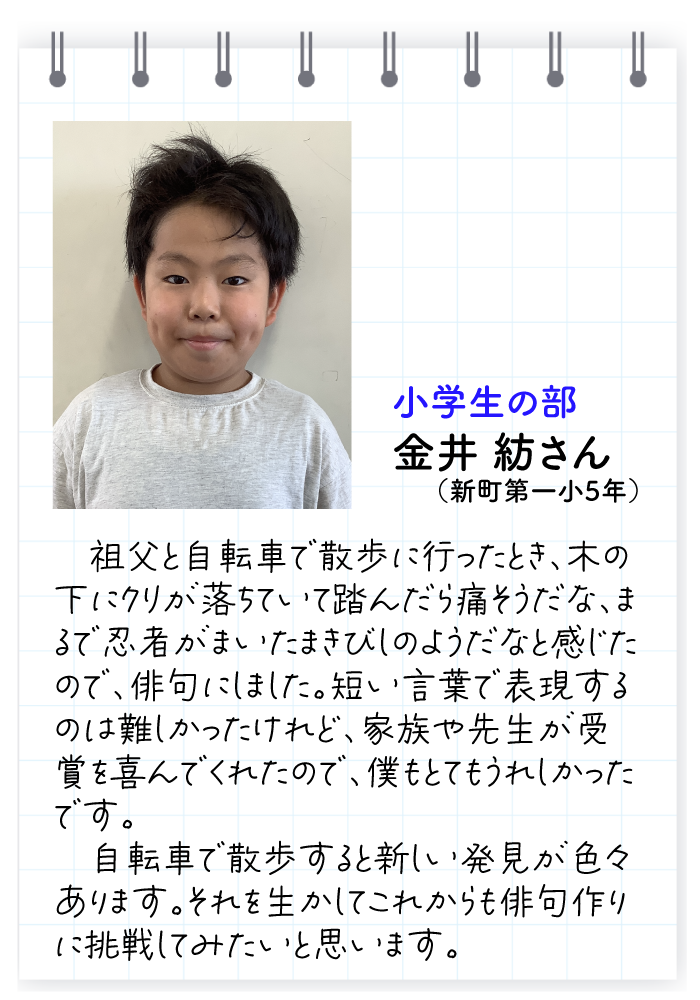 小学生の部
金井 紡さん
（新町第一小5年）
祖父と自転車で散歩に行ったとき、木の
下にクリが落ちていて踏んだら痛そうだな、ま
るで忍者がまいたまきびしのようだなと感じた
ので、俳句にしました。短い言葉で表現する
のは難しかったけれど、家族や先生が受
賞を喜んでくれたので、僕もとてもうれしかった
です。
自転車で散歩すると新しい発見が色々
あります。それを生かしてこれからも俳句作り
に挑戦してみたいと思います。